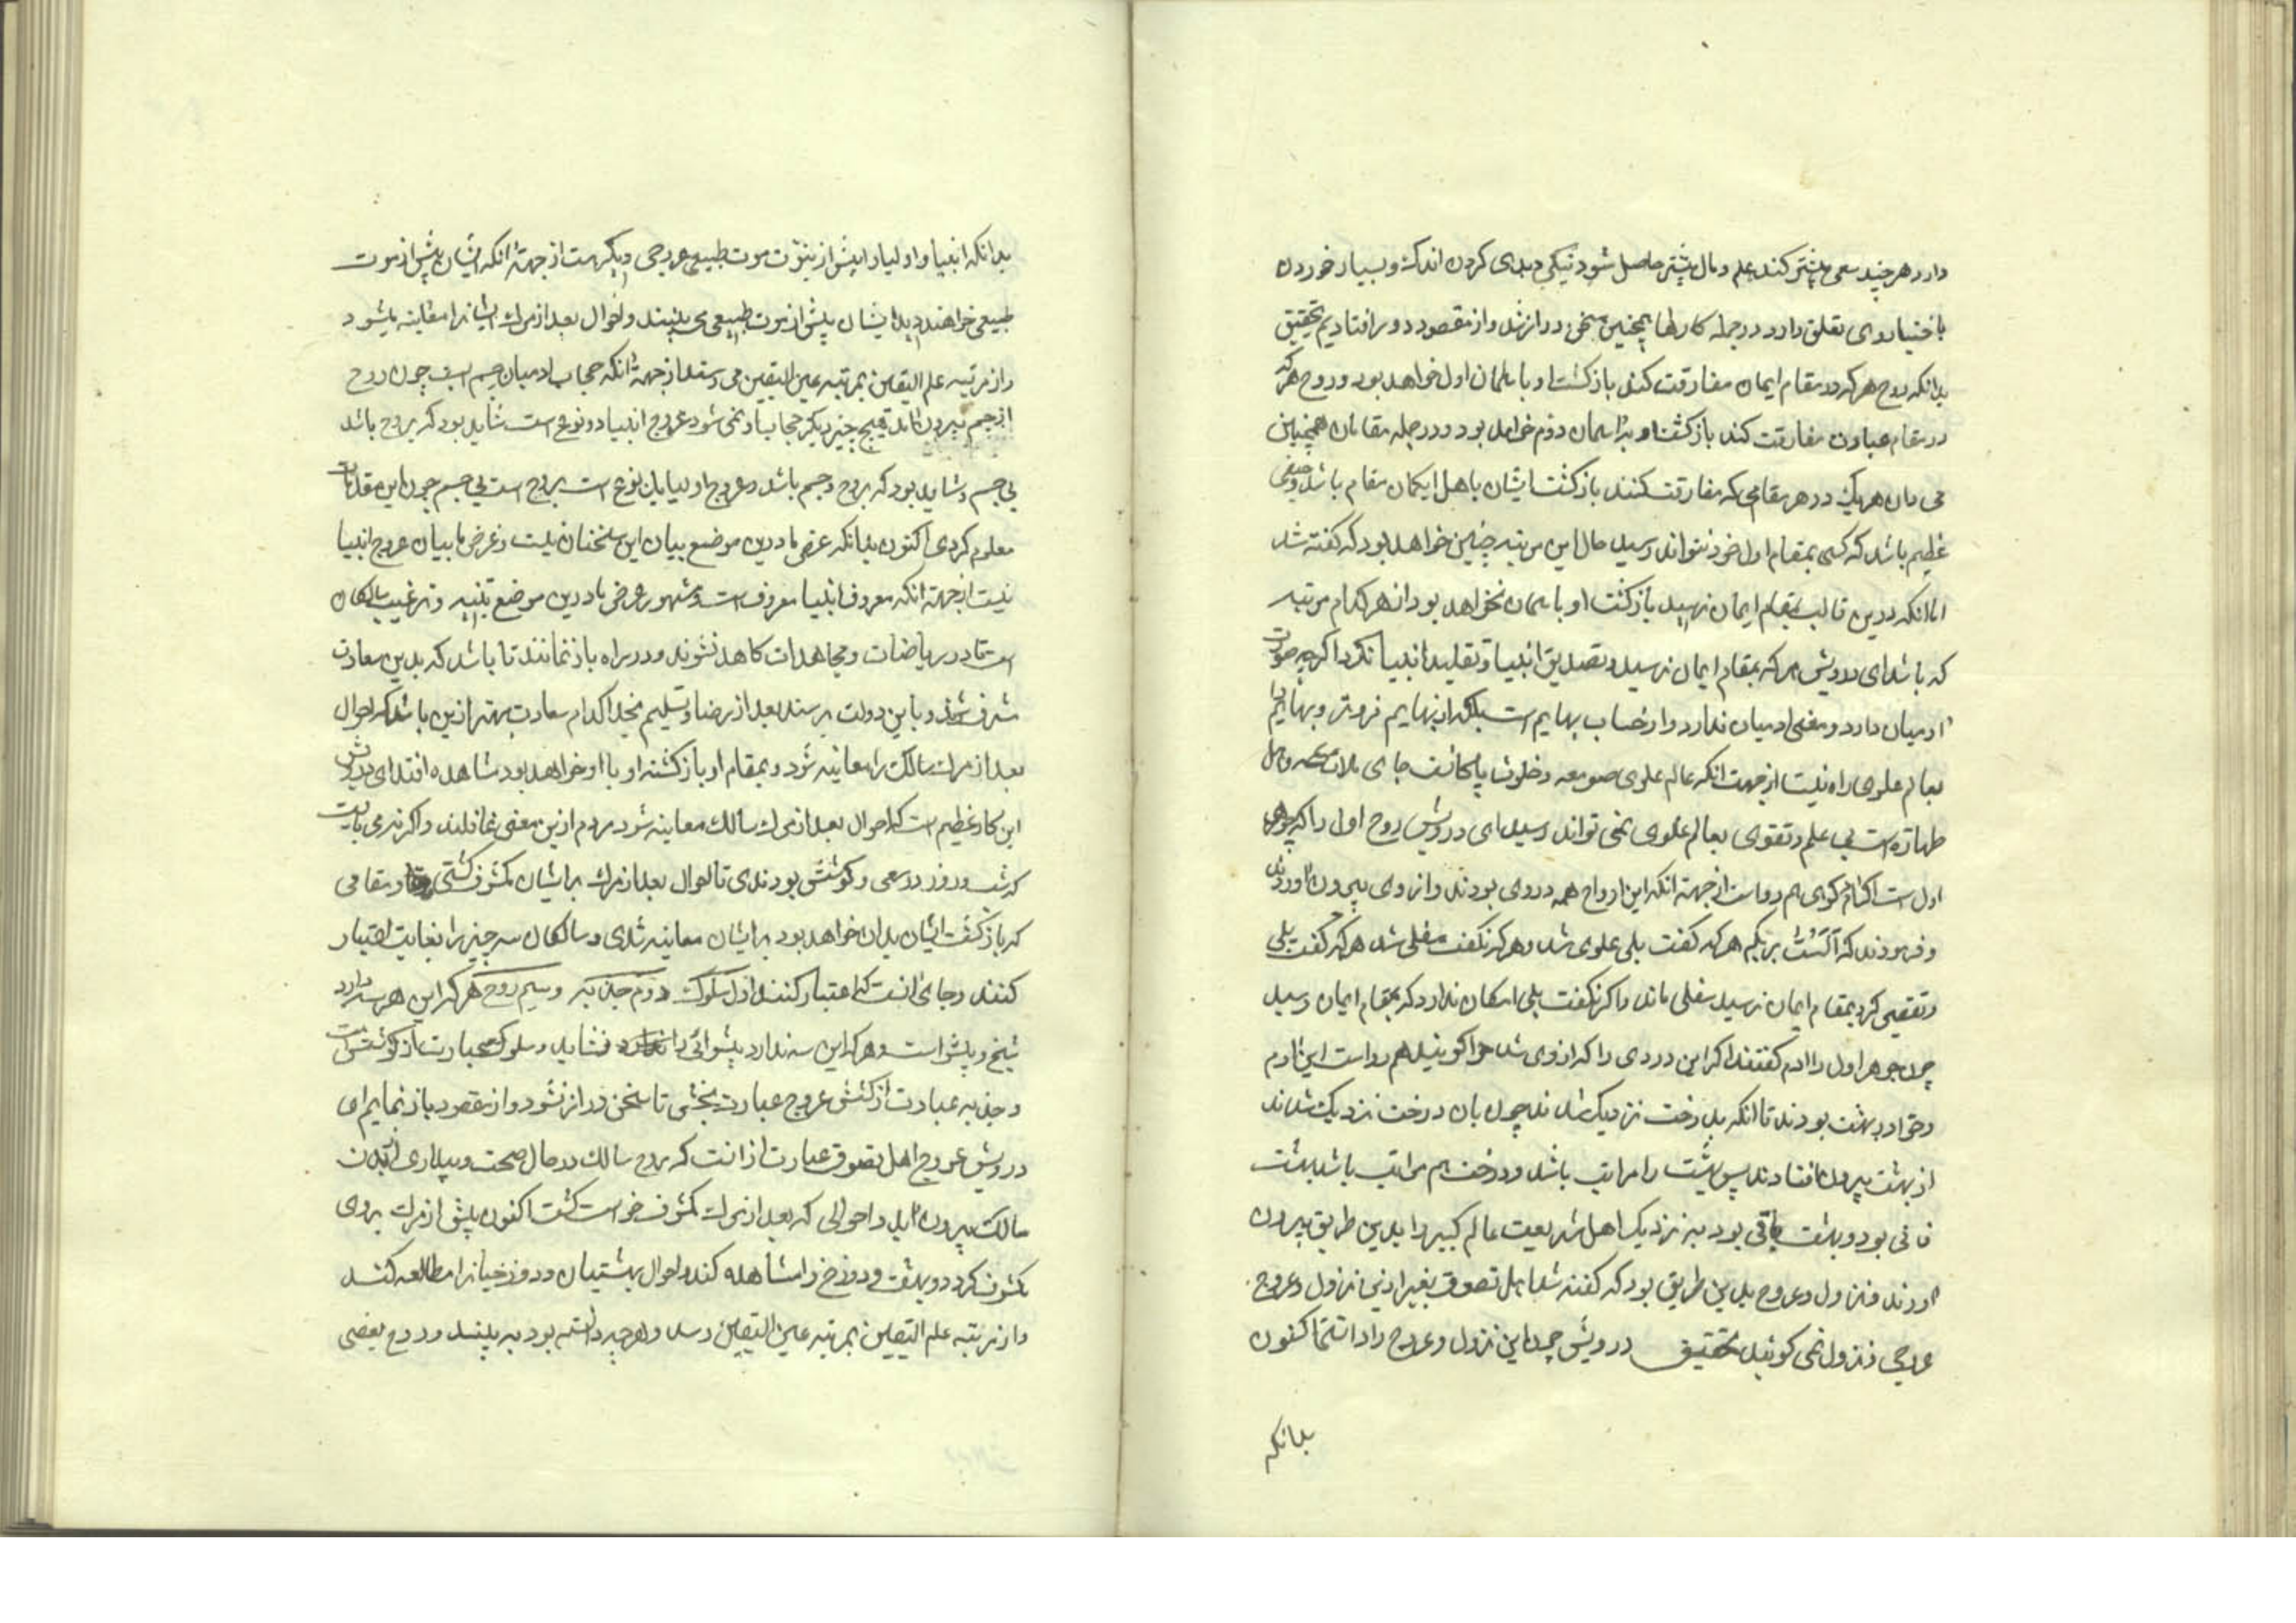 دارد هر چند سعی بیشتر کند علم و مال بیشتر حاصل شود نیکی و بدی کردن اندک و بسیار خوردن
باختیار وی تعلق دارد در جمله کارها همچنین سخن دراز شد و از مقصود دور افتادیم تحقیق
بدانکه روح هر که در مقام ایمان مفارقت کند بازکشت او باسمان اول خواهد بود و روح هر که
در مقام عبادت مفارقت کند بازکشت او باسمان دوم خواهد بود و در جمله مقامات همچنین
می دان هر یک در هر مقامی که مفارقت کنند بازکشت ایشان باهل ان مقام باشد و حیفی
عظیم باشد که کسی بمقام اول خود نتواند رسید حال این مرتبه چنین خواهد بود که کفته شد
اما انکه درین قالب بمقام ایمان نرسید بازکشت او باسمان نخواهد بود از هر کدام مرتبه
که باشد ای درویش هر که بمقام ایمان نرسید و تصدیق انبیا و تقلید انبیا نکرد اکرچه صورت
ادمیان دارد و معنی ادمیان ندارد و از حساب بهایم است بلکه از بهایم فروتر و بهایم را
بعالم علوی راه نیست از جهت انکه عالم علوی صومعه و خلوت پاکانست جای ملائکه و اهل
طهارة است بی علم و تقوی بعالم علوی نمی تواند رسید ای درویش روح اول را که جوهر
اول است اکر ادم کوی هم رواست از جهة انکه این ارواح همه در وی بودند و از وی بیرون اوردند
و فرمودند که اَلَسْتُ بربکم هر که کفت بلی علوی شد و هر که نکفت سفلی شد هر که کفت بلی
و تقصیر کرد بمقام ایمان نرسید سفلی ماند و اکر نکفت بلی امکان ندارد که بمقام ایمان رسید
چون جوهر اول را ادم کفتند اکر این دردی را که از وی شد حوا کویند هم رواست این ادم
و حوا در بهشت بودند تا انکه بدرخت نزدیک شدند چون بان درخت نزدیک شدند
از بهشت بیرون افتادند پس بهشت را مراتب باشد و درخت هم مراتب باشد بهشت
فانی بود و بهشت باقی بود به نزدیک اهل شریعت عالم کبیر را بدین طریق بیرون
اوردند و نزول و عروج بدین طریق بود که کفته شد اهل تصوف بغیر ازین نزول و عروج
عروجی و نزول نمی کویند تحقیق درویش چون این نزول و عروج را دانستی اکنون
بدانکه
بدانکه انبیا و اولیا را پیش از موت طبیعی عروجی دیکر هست از جهة انکه ایشان پیش از موت
طبیعی خواهند دید ایشان پیش از موت طبیعی می بینند و احوال بعد از مرك ایشانرا معاینه میشود
و از مرتبه علم الیقین بمرتبه عین الیقین می رسند از جهة انکه حجاب ادمیان جسم است چون روح
از جسم بیرون اید هیچ چیز دیکر حجاب او نمی شود عروج انبیا دو نوع است شاید بود که بروح باشد
بی جسم و شاید بود که بروح و جسم باشد و عروج اولیا یک نوع است بروح است بی جسم چون این مقدمات
معلوم کردی اکنون بدانکه غرض ما درین موضع بیان این سخنان نیست و غرض ما بیان عروج انبیا
نیست از جهة انکه معروف انبیا معروف است و مشهور غرض ما درین موضع تنبیه و ترغیب سالکان
است تا در ریاضات و مجاهدات کاهل نشوند و در راه باز نمانند تا باشد که بدین سعادت
مشرف شوند و باین دولت برسند بعد از رضا و تسلیم بخدا کدام سعادت بهتر ازین باشد که احوال
بعد از مرك سالک را معاینه شود و بمقام او بازکشته او با او خواهد بود مشاهده افتد ای درویش
این کار عظیم است که احوال بعد از مرك سالك معاینه شود مردم ازین معنی غافلند و اکرنه می بایست
که شب و روز در سعی و کوشش بودندی تا احوال بعد از مرك بر ایشان مکشوف کشتی و مقامی
که بازکشت ایشان بدان خواهد بود بر ایشان معاینه شدی و سالکان سه چیز را بغایت اعتبار
کنند و جای انست که اعتبار کنند اول سلوك دوم جذبه و سیم روح هر که این هر سه دارد
شیخ و پیشواست و هر که این سه ندارد پیشوائی را نشاید و سلوک عبارت از کوشش است
و جذبه عبارت از کشش عروج عبارت بخشی تا سخن دراز نشود و از مقصود باز نمایم ای
درویش عروج اهل تصوف عبارت از انست که روح سالك در حال صحت و بیداری از بدن
سالك بیرون اید و احوالی که بعد از مرك مکشوف خواست کشت اکنون پیش از مرك بروی
مکشوف کردد و بهشت و دوزخ را مشاهده کند و احوال بهشتیان و دوزخیانرا مطالعه کند
و از مرتبه علم الیقین بمرتبه عین الیقین رسد و هر چه دانسته بود به بیند و روح بعضی